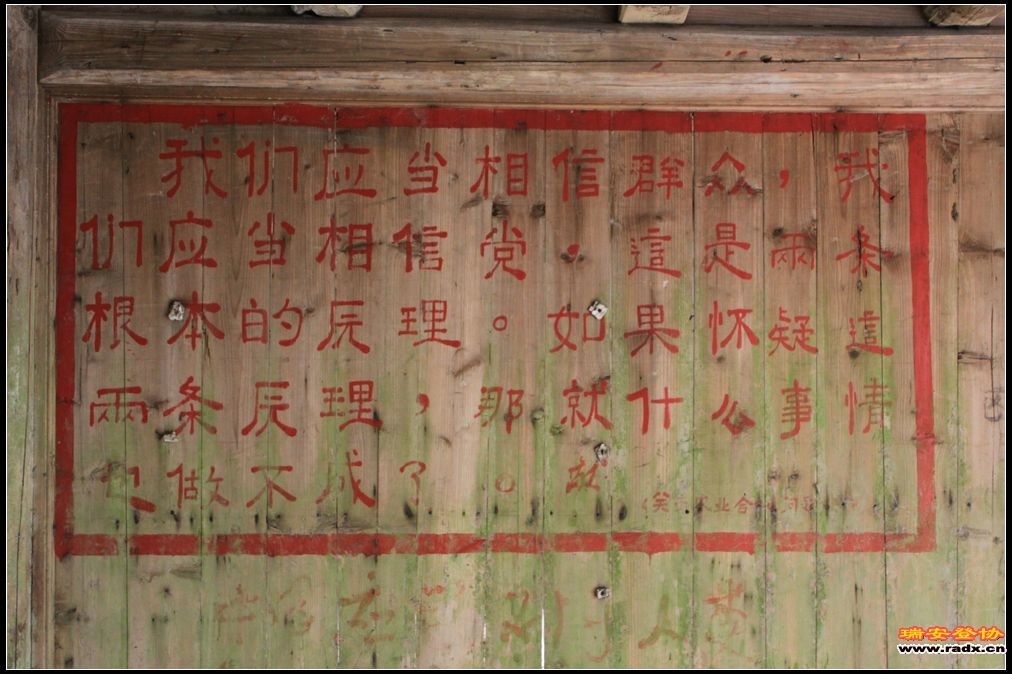 我们应当相信群众，我
们应当相信党。這是兩条
根本的原理。如果怀疑這
兩条原理，那就什么事情
也做不成了。
《关于农业合作化问题》
瑞安登协
www.radx.cn